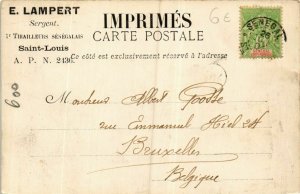 E. LAMPERT
Sergent.
1er TIRAILLEURS SÉNÉGALAIS
Saint-Louis
A. P. N. 2430.
IMPRIMÉS
6€
CARTE POSTALE
Ce côté est exclusivement réservé à l'adresse
SENEGAL
600
Monsieur Albert Goosse
rue Emmanuel Hiel 24
Bruxelles
Belgique